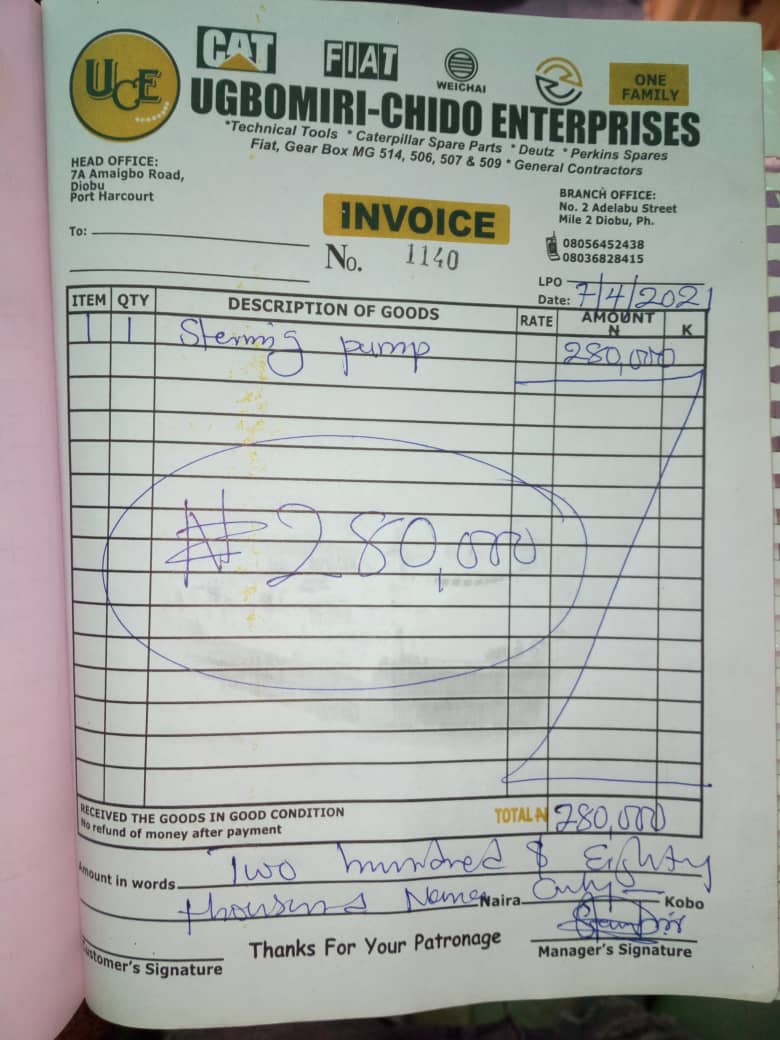 UCE
CAT
FIAT
WEICHAI
ONE FAMILY
UGBOMIRI-CHIDO ENTERPRISES
*Technical Tools * Caterpillar Spare Parts * Deutz * Perkins Spares
Fiat, Gear Box MG 514, 506, 507 & 509 * General Contractors
HEAD OFFICE:
7A Amaigbo Road,
Diobu
Port Harcourt
BRANCH OFFICE:
No. 2 Adelabu Street
Mile 2 Diobu, Ph.
08056452438
08036828415
INVOICE
To:
No. 1140
LPO
Date: 7/4/2021
ITEM QTY DESCRIPTION OF GOODS RATE AMOUNT N K
1 1 Sterring pump 280,000
₦280,000
RECEIVED THE GOODS IN GOOD CONDITION
No refund of money after payment
TOTAL ₦ 280,000
Amount in words Two hundred & Eighty
thousand Naira Naira Only Kobo
Thanks For Your Patronage
Customer's Signature
Manager's Signature